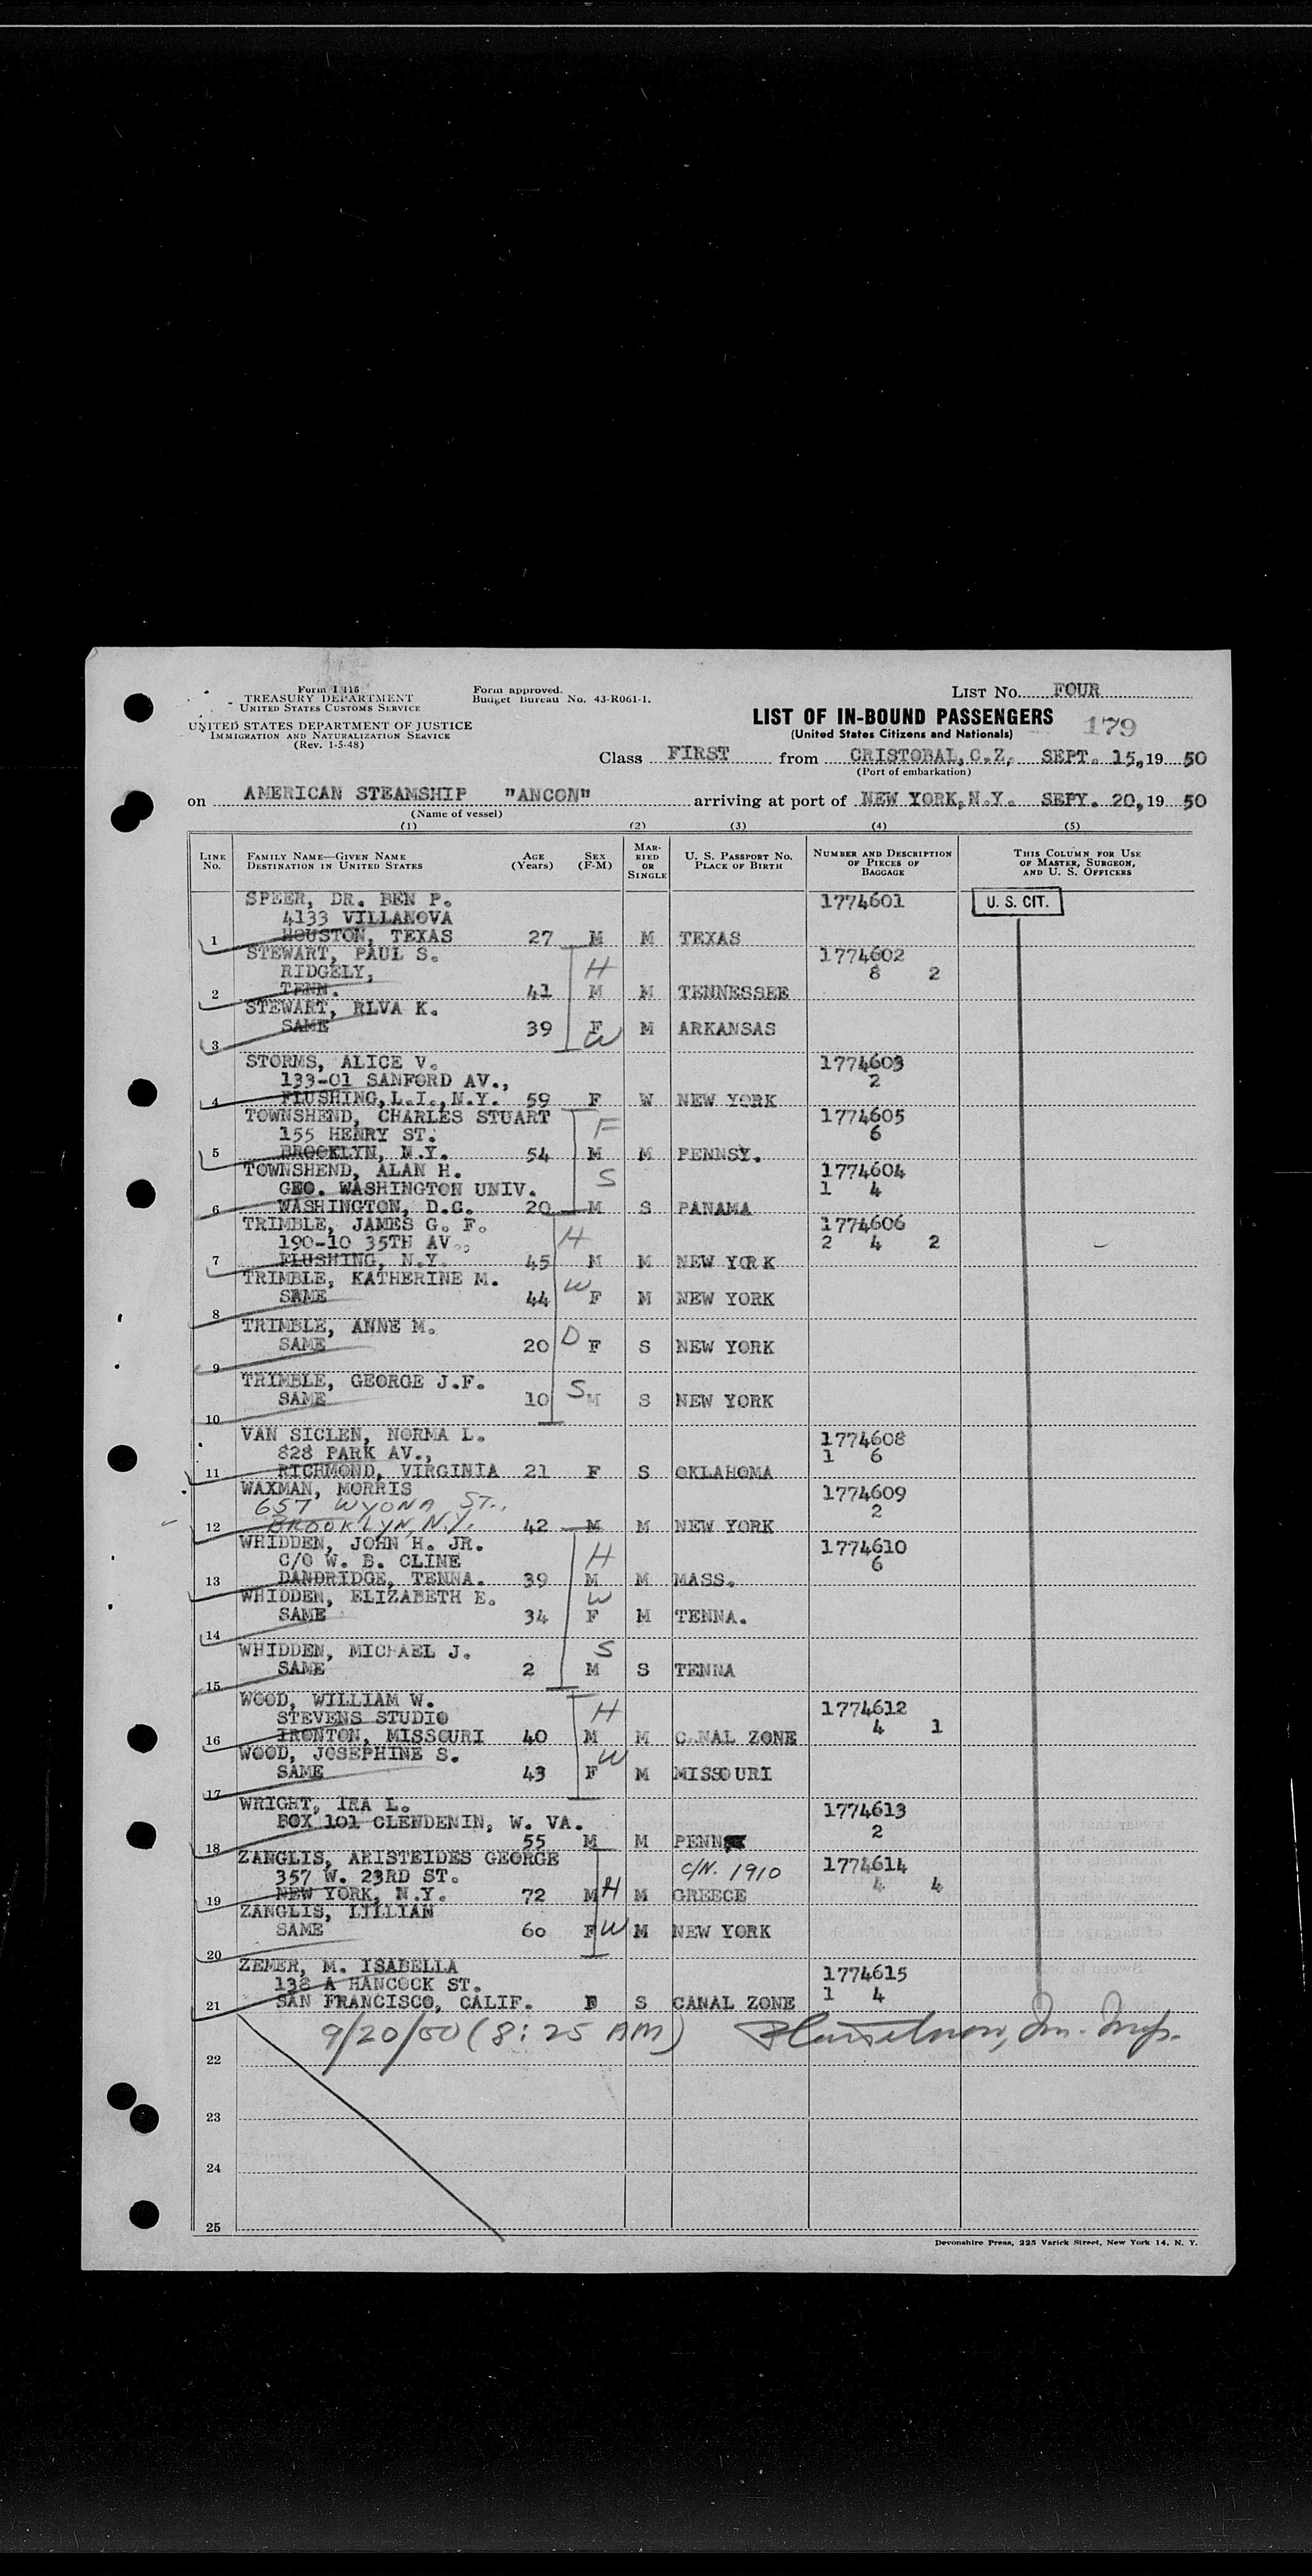 Form I 416
TREASURY DEPARTMENT
UNITED STATES CUSTOMS SERVICE
UNITED STATES DEPARTMENT OF JUSTICE
IMMIGRATION AND NATURALIZATION SERVICE
(Rev. 1-5-48)
Form approved.
Budget Bureau No. 43-R061-1.
LIST NO. FOUR
LIST OF IN-BOUND PASSENGERS 179
(United States Citizens and Nationals)
Class FIRST from CRISTOBAL, C.Z, SEPT. 15, 19 50
(Port of embarkation)
on AMERICAN STEAMSHIP "ANCON" arriving at port of NEW YORK, N.Y. SEPY. 20, 19 50
(Name of vessel)
(1) (2) (3) (4) (5)
LINE NO. FAMILY NAME—GIVEN NAME DESTINATION IN UNITED STATES AGE (Years) SEX (F-M) MARRIED OR SINGLE U. S. PASSPORT NO. PLACE OF BIRTH NUMBER AND DESCRIPTION OF PIECES OF BAGGAGE THIS COLUMN FOR USE OF MASTER, SURGEON, AND U. S. OFFICERS
SPEER, DR. BEN P. 1774601 U. S. CIT.
4133 VILLANOVA
1 HOUSTON, TEXAS 27 M M TEXAS
STEWART, PAUL S. 1774602
RIDGELY, H 8 2
2 TENN. 41 M M TENNESSEE
STEWART, RLVA K.
3 SAME 39 F W M ARKANSAS
STORMS, ALICE V. 1774603
133-01 SANFORD AV., 2
4 FLUSHING, L.I., N.Y. 59 F W NEW YORK
TOWNSHEND, CHARLES STUART 1774605
155 HENRY ST. F 6
5 BROOKLYN, N.Y. 54 M M PENNSY.
TOWNSHEND, ALAN H. S 1774604
GEO. WASHINGTON UNIV. 1 4
6 WASHINGTON, D.C. 20 M S PANAMA
TRIMBLE, JAMES G. F. 1774606
190-10 35TH AV., H 2 4 2
7 FLUSHING, N.Y. 45 M M NEW YORK
TRIMBLE, KATHERINE M. W
8 SAME 44 F M NEW YORK
TRIMBLE, ANNE M. D
9 SAME 20 F S NEW YORK
TRIMBLE, GEORGE J.F. S
10 SAME 10 M S NEW YORK
VAN SICLEN, NORMA L. 1774608
828 PARK AV., 1 6
11 RICHMOND, VIRGINIA 21 F S OKLAHOMA
WAXMAN, MORRIS 1774609
657 WYONA ST., 2
12 BROOKLYN, N.Y. 42 M M NEW YORK
WHIDDEN, JOHN H. JR. 1774610
C/O W. B. CLINE H 6
13 DANDRIDGE, TENNA. 39 M M MASS.
WHIDDEN, ELIZABETH E. W
14 SAME 34 F M TENNA.
WHIDDEN, MICHAEL J. S
15 SAME 2 M S TENNA
WOOD, WILLIAM W. 1774612
STEVENS STUDIO H 4 1
16 IRONTON, MISSOURI 40 M M CANAL ZONE
WOOD, JOSEPHINE S. W
17 SAME 43 F M MISSOURI
WRIGHT, IRA L. 1774613
BOX 101 CLENDENIN, W. VA. 2
18 55 M M PENN
ZANGLIS, ARISTEIDES GEORGE C/N. 1910 1774614
357 W. 23RD ST. 4 4
19 NEW YORK, N.Y. 72 M H M GREECE
ZANGLIS, LILLIAN
20 SAME 60 F W M NEW YORK
ZEMER, M. ISABELLA 1774615
138 A HANCOCK ST. 1 4
21 SAN FRANCISCO, CALIF. F S CANAL ZONE
9/20/50 (8:25 AM) Im. Insp.
22
23
24
25
Devonshire Press, 225 Varick Street, New York 14, N. Y.